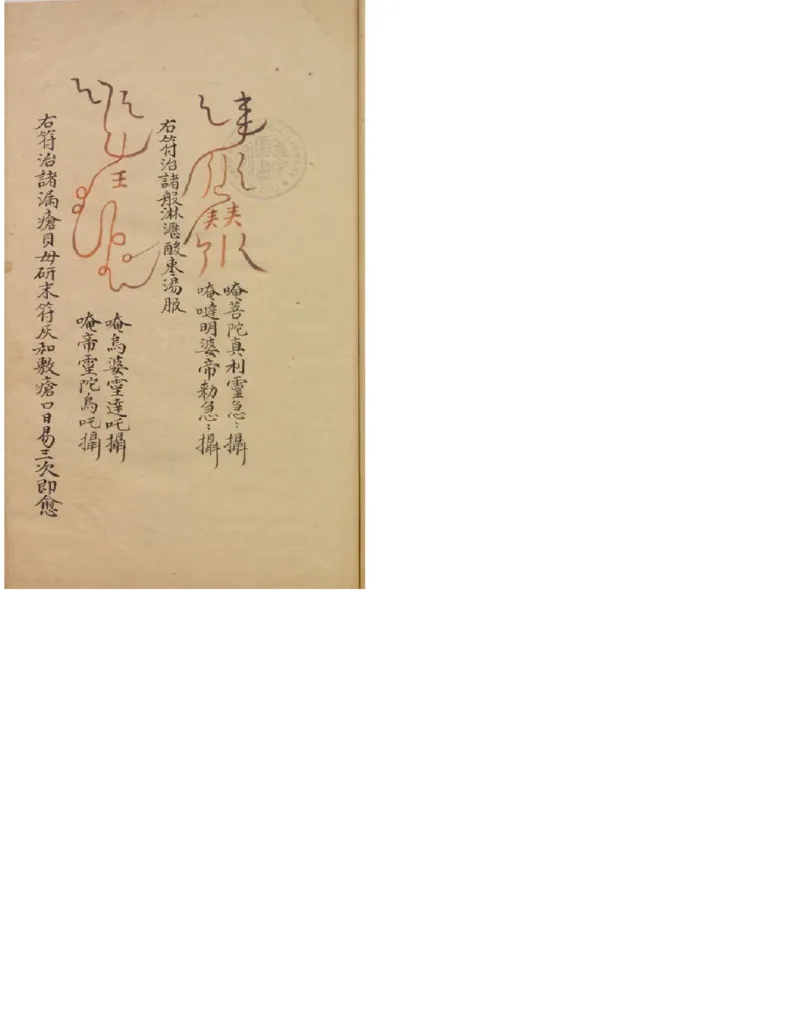 唵菩陀真利靈急〻攝
唵噠明婆帝勅急〻攝
右符治諸般淋瀝酸棗湯服
唵烏婆靈達吒攝
唵帝靈陀烏吒攝
右符治諸漏瘡貝母研末符灰和敷瘡口日易三次即愈